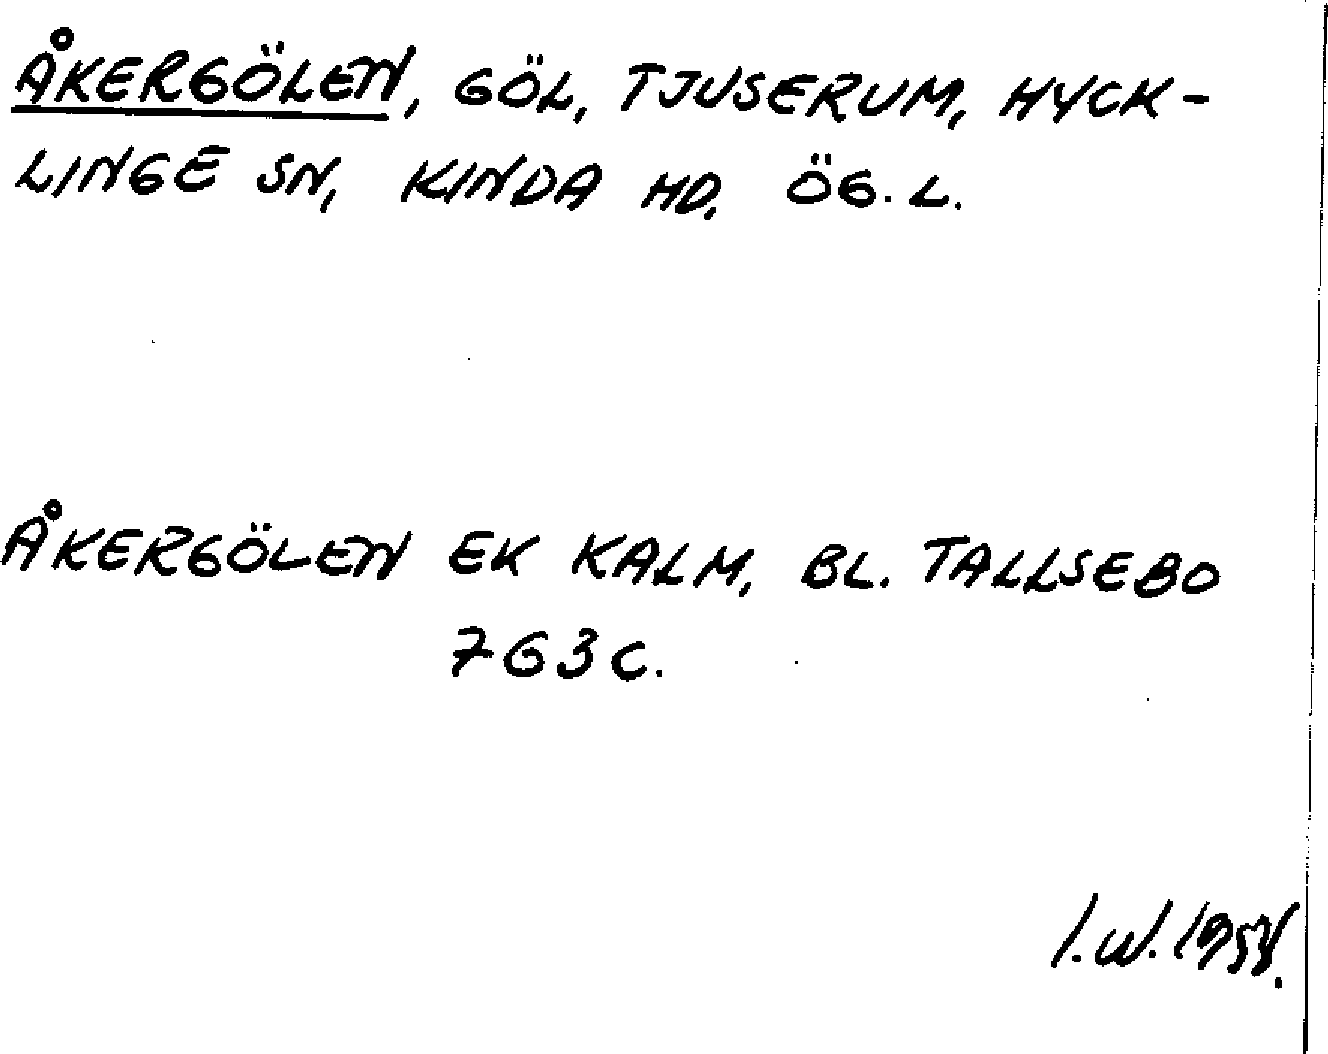 ÅKERGÖLEN, GÖL, TJUSERUM, HYCK-
LINGE SN, KINDA HD, ÖG. L.
ÅKERGÖLEN EK KALM, BL. TALLSEBO
763 C.
I.W. 1958.